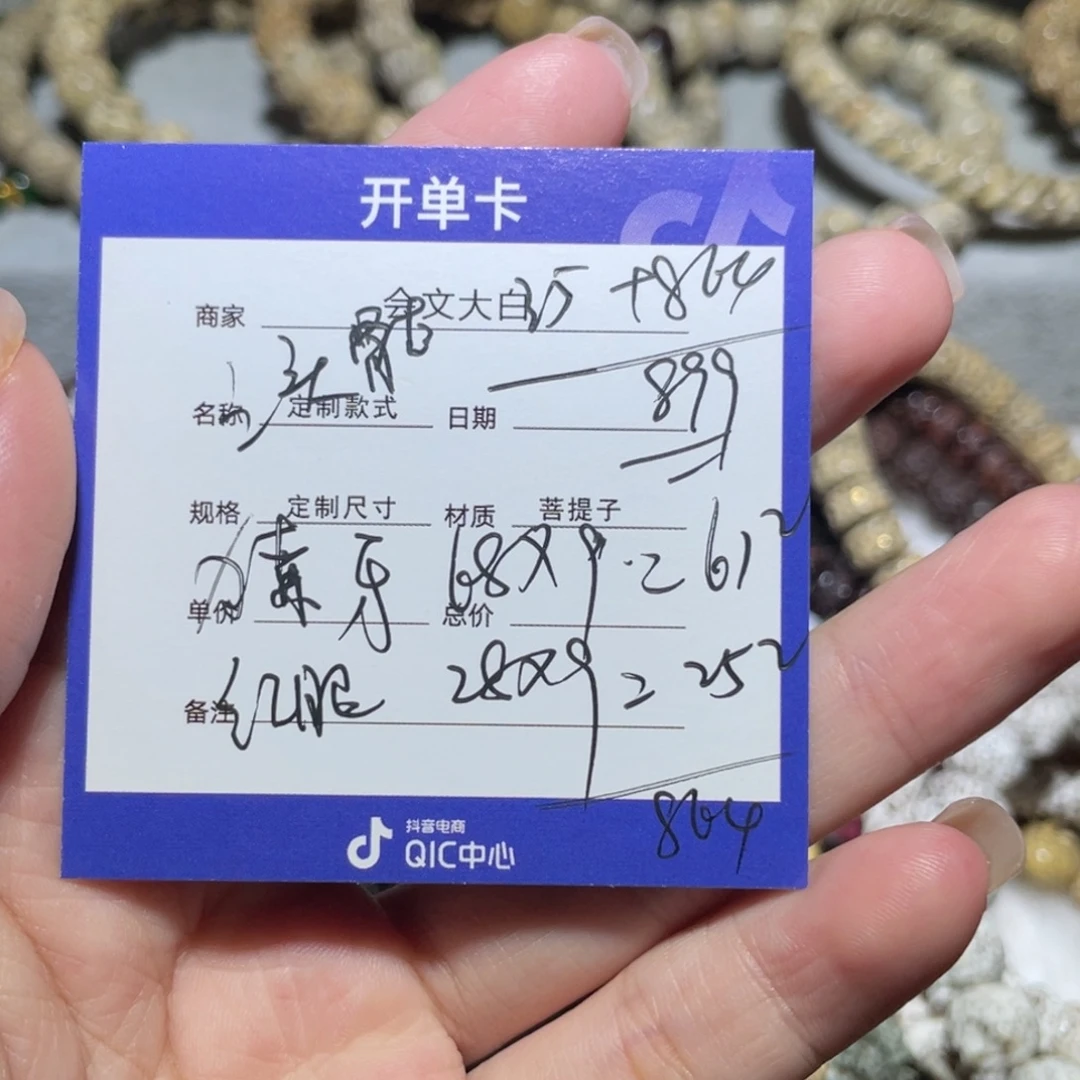 开单卡
商家 会文大白 35 +864
头骨
899
名称 定制款式 日期
规格 定制尺寸 材质 菩提子
牙 68X9 = 612
单价 总价
红 28X9 = 252
备注
864
抖音电商
QIC中心